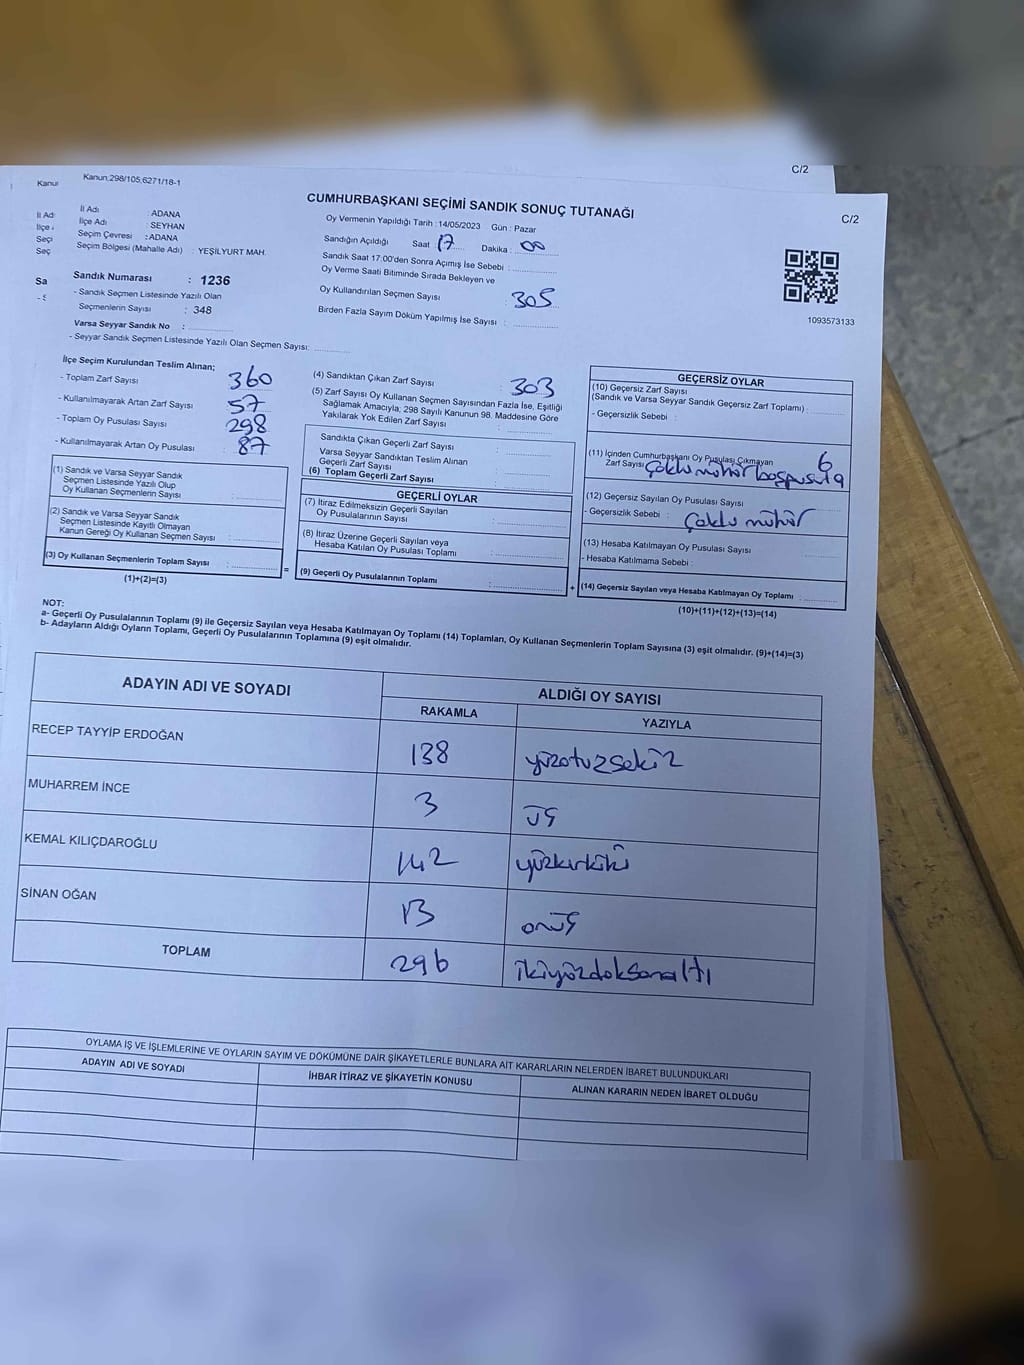 C/2
Kanun;298/105;6271/18-1
Kanu
CUMHURBAŞKANI SEÇİMİ SANDIK SONUÇ TUTANAĞI
C/2
İl Adı : ADANA
İlçe Adı : SEYHAN
Seçim Çevresi : ADANA
Seçim Bölgesi (Mahalle Adı) : YEŞİLYURT MAH.
İl Ad
İlçe
Seçi
Seç
Sa
Oy Vermenin Yapıldığı Tarih : 14/05/2023 Gün : Pazar
Sandığın Açıldığı Saat 17 Dakika : 00
Sandık Saat 17:00'den Sonra Açımış İse Sebebi :
Oy Verme Saati Bitiminde Sırada Bekleyen ve
Oy Kullandırılan Seçmen Sayısı : 305
Birden Fazla Sayım Döküm Yapılmış İse Sayısı :
1093573133
Sandık Numarası : 1236
- Sandık Seçmen Listesinde Yazılı Olan
Seçmenlerin Sayısı : 348
Varsa Seyyar Sandık No :
- Seyyar Sandık Seçmen Listesinde Yazılı Olan Seçmen Sayısı:
İlçe Seçim Kurulundan Teslim Alınan;
- Toplam Zarf Sayısı 360
- Kullanılmayarak Artan Zarf Sayısı : 57
- Toplam Oy Pusulası Sayısı : 298
- Kullanılmayarak Artan Oy Pusulası : 87
(1) Sandık ve Varsa Seyyar Sandık
Seçmen Listesinde Yazılı Olup
Oy Kullanan Seçmenlerin Sayısı :
(2) Sandık ve Varsa Seyyar Sandık
Seçmen Listesinde Kayıtlı Olmayan
Kanun Gereği Oy Kullanan Seçmen Sayısı :
(3) Oy Kullanan Seçmenlerin Toplam Sayısı :
(1)+(2)=(3)
(4) Sandıktan Çıkan Zarf Sayısı : 303
(5) Zarf Sayısı Oy Kullanan Seçmen Sayısından Fazla İse, Eşitliği
Sağlamak Amacıyla; 298 Sayılı Kanunun 98. Maddesine Göre
Yakılarak Yok Edilen Zarf Sayısı :
Sandıkta Çıkan Geçerli Zarf Sayısı :
Varsa Seyyar Sandıktan Teslim Alınan
Geçerli Zarf Sayısı
(6) Toplam Geçerli Zarf Sayısı :
GEÇERLİ OYLAR
(7) İtiraz Edilmeksizin Geçerli Sayılan
Oy Pusulalarının Sayısı :
(8) İtiraz Üzerine Geçerli Sayılan veya
Hesaba Katılan Oy Pusulası Toplamı :
(9) Geçerli Oy Pusulalarının Toplamı :
=
+
GEÇERSİZ OYLAR
(10) Geçersiz Zarf Sayısı
(Sandık ve Varsa Seyyar Sandık Geçersiz Zarf Toplamı) :
- Geçersizlik Sebebi :
(11) İçinden Cumhurbaşkanı Oy Pusulası Çıkmayan 6
Zarf Sayısı çoklu mühür boş pusula
(12) Geçersiz Sayılan Oy Pusulası Sayısı
- Geçersizlik Sebebi : Çoklu mühür
(13) Hesaba Katılmayan Oy Pusulası Sayısı :
- Hesaba Katılmama Sebebi :
(14) Geçersiz Sayılan veya Hesaba Katılmayan Oy Toplamı :
(10)+(11)+(12)+(13)=(14)
NOT:
a- Geçerli Oy Pusulalarının Toplamı (9) ile Geçersiz Sayılan veya Hesaba Katılmayan Oy Toplamı (14) Toplamları, Oy Kullanan Seçmenlerin Toplam Sayısına (3) eşit olmalıdır. (9)+(14)=(3)
b- Adayların Aldığı Oyların Toplamı, Geçerli Oy Pusulalarının Toplamına (9) eşit olmalıdır.
ADAYIN ADI VE SOYADI ALDIĞI OY SAYISI
RAKAMLA YAZIYLA
RECEP TAYYİP ERDOĞAN 138 yüzotuzsekiz
MUHARREM İNCE 3 üç
KEMAL KILIÇDAROĞLU 142 yüzkırkiki
SİNAN OĞAN 13 onüç
TOPLAM 296 ikiyüzdoksanaltı
OYLAMA İŞ VE İŞLEMLERİNE VE OYLARIN SAYIM VE DÖKÜMÜNE DAİR ŞİKAYETLERLE BUNLARA AİT KARARLARIN NELERDEN İBARET BULUNDUKLARI
ADAYIN ADI VE SOYADI İHBAR İTİRAZ VE ŞİKAYETİN KONUSU ALINAN KARARIN NEDEN İBARET OLDUĞU